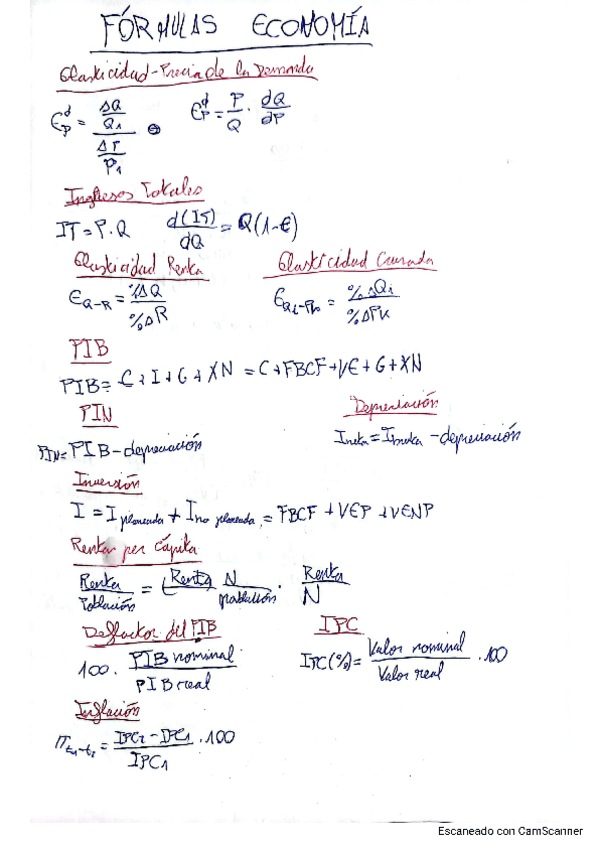 FÓRMULAS ECONOMÍA
Elasticidad-Precio de la Demanda
Є^d_P = (ΔQ/Q1)/(ΔP/P1) Є^d_P = P/Q · dQ/∂P
Ingresos Totales
IT = P·Q d(IT)/dQ = Q(1-Є)
Elasticidad Renta Elasticidad Cruzada
Є_Q-R = %ΔQ/%ΔR = %ΔQi/%ΔPk
PIB
PIB = C+I+G+XN = C+FBCF+VE+G+XN
PIN Depreciación
PIN = PIB-depreciación Ineta = Ibruta -depreciación
Inversión
I = I planeada + I no planeada = FBCF + VEP + VENP
Renta per cápita
Renta/Población = Renta N/población · Renta/N
Deflactor del PIB IPC
100 · PIB nominal/PIB real IPC(%) = Valor nominal/Valor real · 100
Inflación
π_t1-t2 = (IPC2 - IPC1)/IPC1 · 100
Escaneado con CamScanner